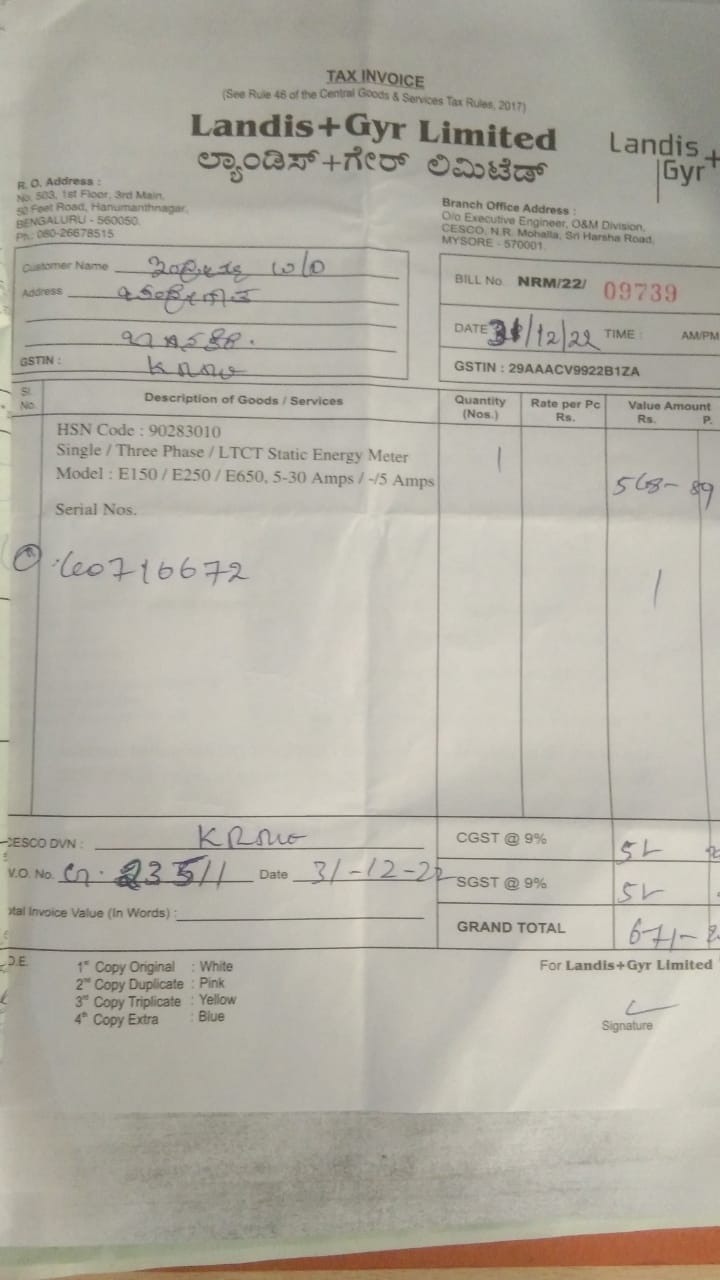 TAX INVOICE
(See Rule 46 of the Central Goods & Services Tax Rules, 2017)
Landis+Gyr Limited
ಲ್ಯಾಂಡಿಸ್+ಗೇರ್ ಲಿಮಿಟೆಡ್
Landis+
Gyr
R. O. Address :
No. 503, 1st Floor, 3rd Main,
50 Feet Road, Hanumanthnagar,
BENGALURU - 560050.
Ph.: 080-26678515
Branch Office Address :
O/o Executive Engineer, O&M Division,
CESCO, N.R. Mohalla, Sri Harsha Road,
MYSORE - 570001.
Customer Name
Address
GSTIN :
BILL No. NRM/22/ 09739
DATE 31/12/22 TIME : AM/PM
GSTIN : 29AAACV9922B1ZA
Sl. No. Description of Goods / Services Quantity (Nos.) Rate per Pc Rs. Value Amount Rs. P.
HSN Code : 90283010
Single / Three Phase / LTCT Static Energy Meter 1
Model : E150 / E250 / E650, 5-30 Amps / -/5 Amps 568-89
Serial Nos.
60716672
CESCO DVN :
CGST @ 9% 51
V.O. No. 23511 Date 31-12-22
SGST @ 9% 51
Total Invoice Value (In Words) :
GRAND TOTAL 671-
1st Copy Original : White
2nd Copy Duplicate : Pink
3rd Copy Triplicate : Yellow
4th Copy Extra : Blue
For Landis+Gyr Limited
Signature